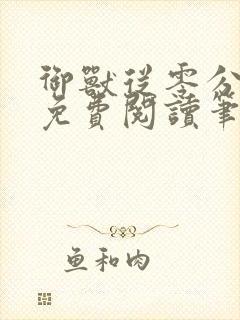 御獸從零分
免費閱讀筆
魚和肉